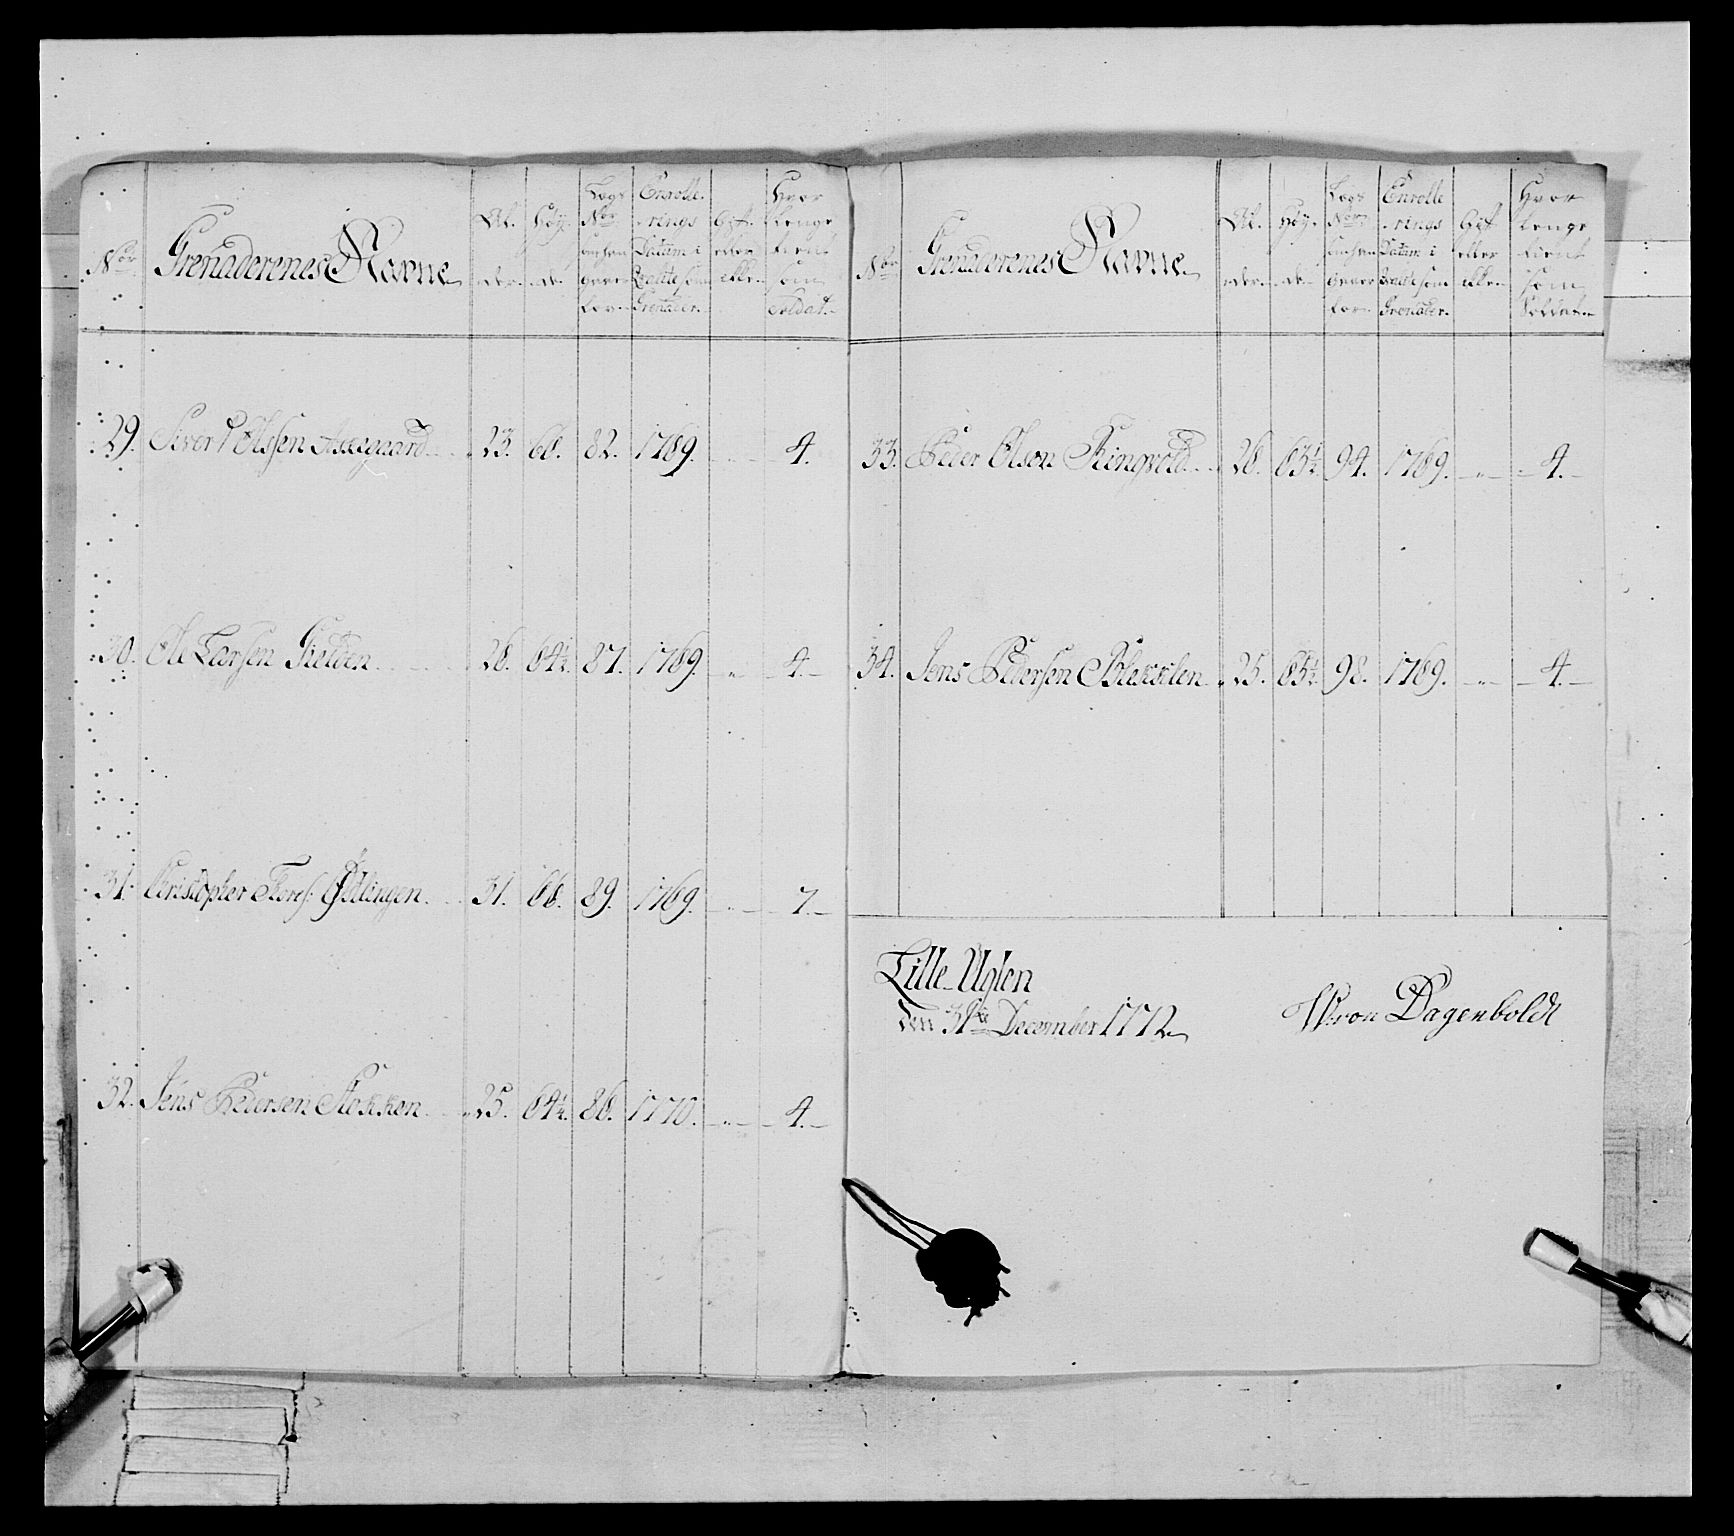 Nor Grenaderenes Navne Al-der Høy-de Lægs Nor Enrolle-rings Datum i Rulle som Grenader. Gift eller ikke Hvor lenge tient som Soldat.
29. Siver Olssen 23. 66. 82. 1769. 4.
30. Ole Larsen Gielden 26. 64½. 87. 1769. „ 4.
31. Christopher Tores: 31. 66. 89. 1769. „ 7.
32. Jens Pedersen Stokken 25. 64½. 86. 1770. „ 4.
Nor Grenaderenes Navne Al-der Høy-de Lægs Nor Enrolle-rings Datum i Rulle som Grenader. Gift eller ikke Hvor lenge tient som Soldat.
33. Peder Olsen Ringvold 26. 63½. 94. 1769. „ 4.
34. Jens Pedersen Blekkelen 25. 65½. 98. 1769. „ 4.
Lille Uglen
den 31te December 1772
von Dagenboldt